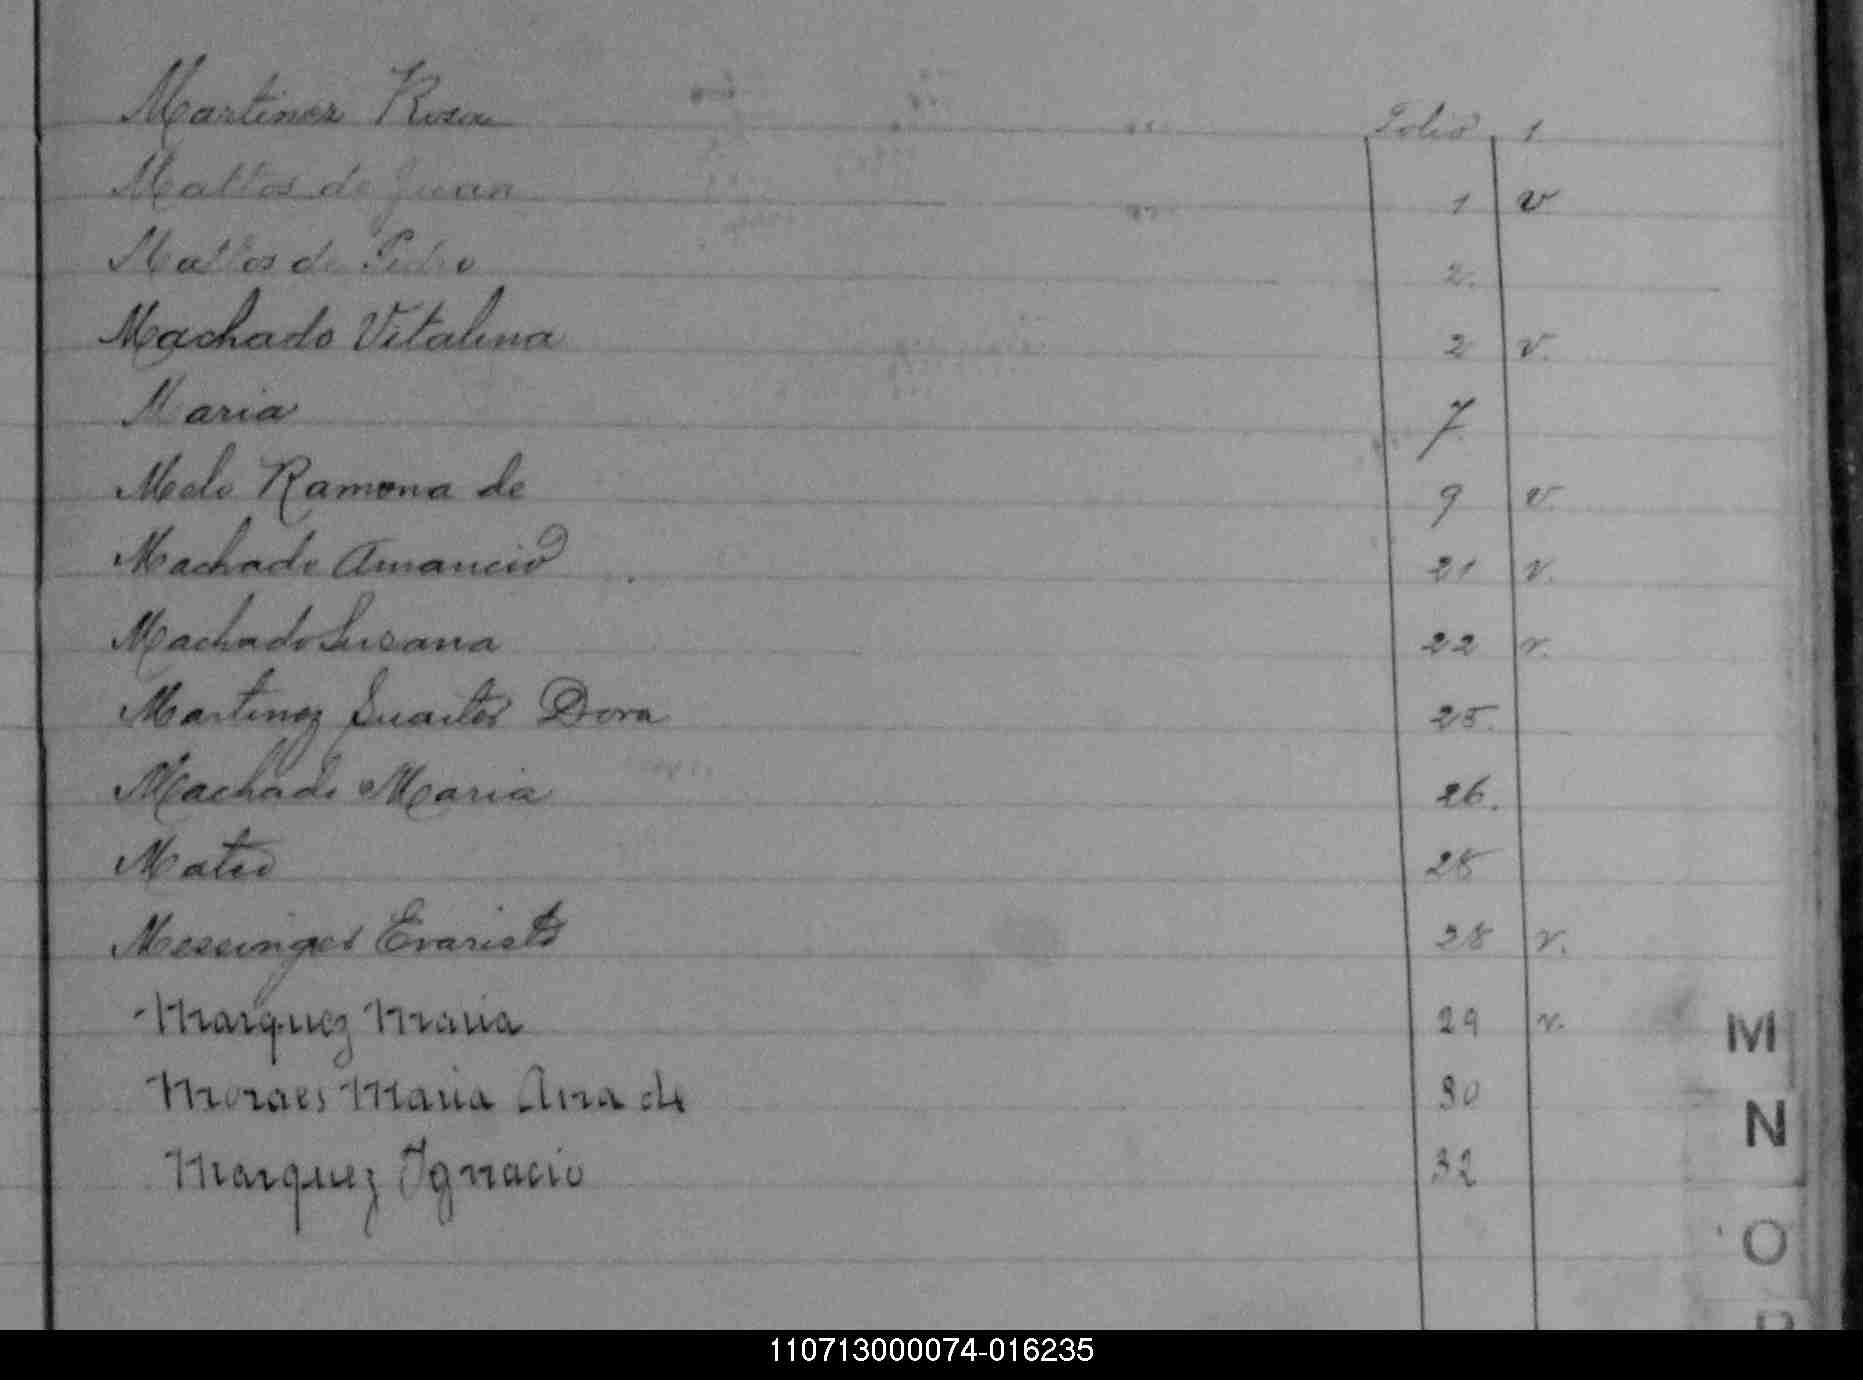 Martinez Rosa Folio 1
Mattos de Juan 1 v
Mattos de Pedro 2.
Machado Vitalina 2 v.
Maria 7
Melo Ramona de 9 v.
Machado Amancio 21 v.
Machado Susana 22 v.
Martinez Dora 25.
Machado Maria 26.
Mateo 28
Messinger Evaristo 28 v.
Marquez Maria 29 v.
Moraes Maria Ana de 30
Marquez Ignacio 32
M
N
O
P
110713000074-016235